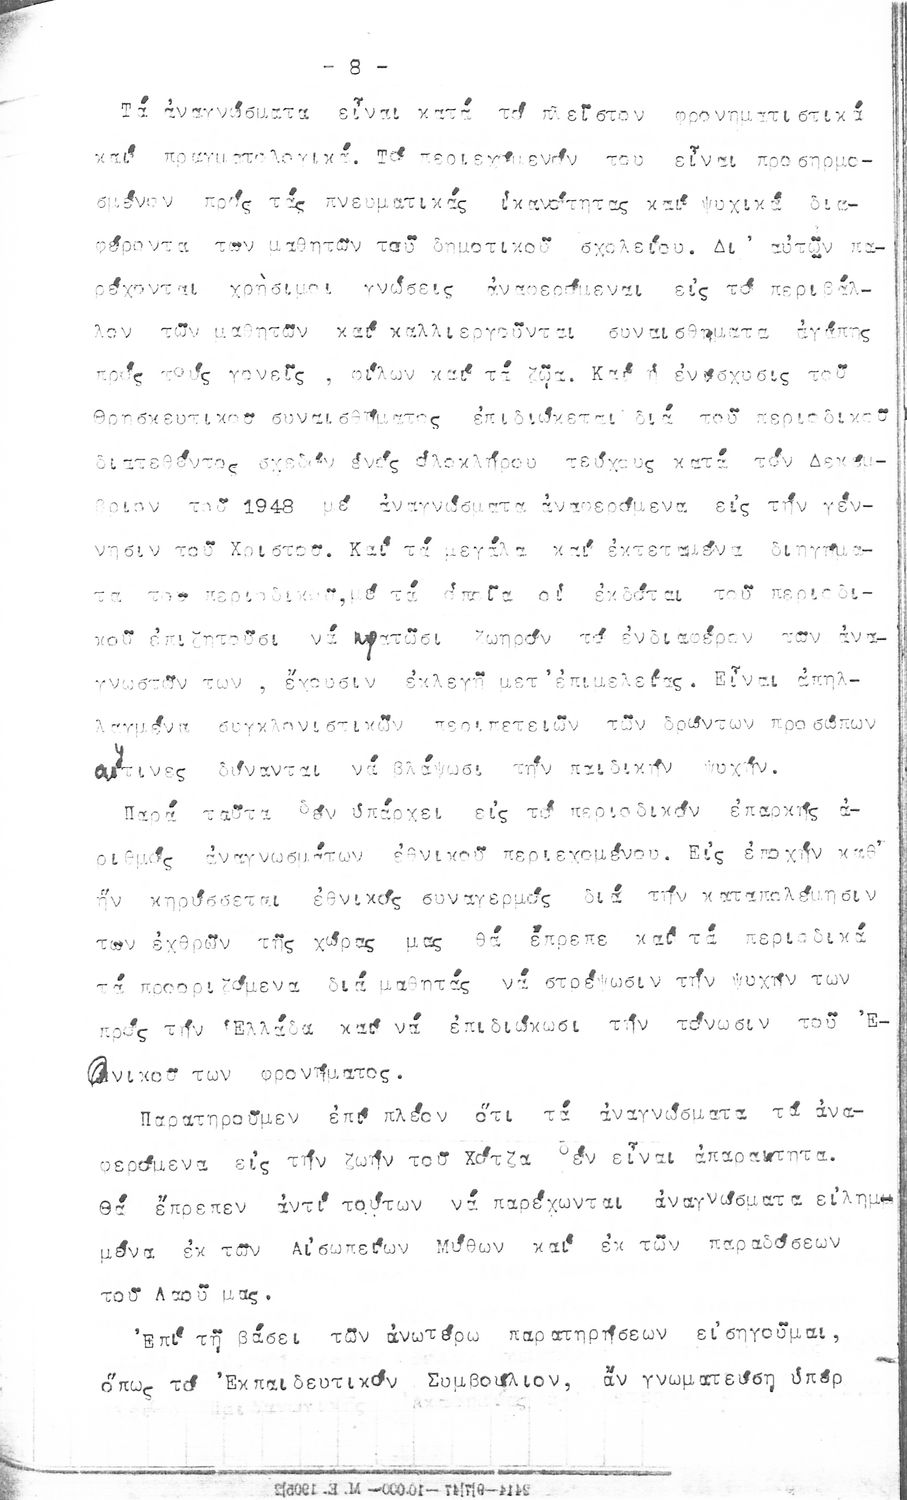 - 8 -
Τά ἀναγνώσματα εἶναι κατά τό πλεῖστον φρονηματιστικά
καί πραγματολογικά. Τό περιεχόμενόν του εἶναι προσηρμο-
σμένον πρός τάς πνευματικάς ἱκανότητας καί ψυχικά δια-
φέροντα των μαθητῶν τοῦ δημοτικοῦ σχολείου. Δι' αὐτῶν πα-
ρέχονται χρήσιμοι γνώσεις ἀναφερόμεναι εἰς τό περιβάλ-
λον τῶν μαθητῶν καί καλλιεργοῦνται συναισθηματα ἀγάπης
πρός τούς γονεῖς , φίλων καί τά ζῶα. Καί ἡ ἐνίσχυσις τοῦ
θρησκευτικοῦ συναισθήματος ἐπιδιώκεται διά τοῦ περιοδικοῦ
διατεθέντος σχεδόν ἑνός ὁλοκλήρου τεύχους κατά τόν Δεκέμ-
βριον τοῦ 1948 μέ ἀναγνώσματα ἀναφερόμενα εἰς τήν γέν-
νησιν τοῦ Χριστοῦ. Καί τά μεγάλα καί ἐκτεταμένα διηγήμα-
τα του περιοδικοῦ,μέ τά ὁποῖα οἱ ἐκδόται τοῦ περιοδι-
κοῦ ἐπιζητοῦσι νά κρατῶσι ζωηρόν τό ἐνδιαφέρον των ἀνα-
γνωστῶν των , ἔχουσιν ἐκλεγῆ μετ'ἐπιμελείας. Εἶναι ἀπηλ-
λαγμένα συγκλονιστικῶν περιπετειῶν τῶν δρώντων προσώπων
αἵτινες δύνανται νά βλάψωσι τήν παιδικήν ψυχήν.
Παρά ταῦτα δέν ὑπάρχει εἰς τό περιοδικόν ἐπαρκής ἀ-
ριθμός ἀναγνωσμάτων ἐθνικοῦ περιεχομένου. Εἰς ἐποχήν καθ'
ἥν κηρύσσεται ἐθνικός συναγερμός διά τήν καταπολέμησιν
των ἐχθρῶν τῆς χώρας μας θά ἔπρεπε καί τά περιοδικά
τά προοριζόμενα διά μαθητάς νά στρέψωσιν τήν ψυχήν των
πρός τήν Ἑλλάδα καί νά ἐπιδιώκωσι τήν τόνωσιν τοῦ Ἐ-
θνικοῦ των φρονήματος.
Παρατηροῦμεν ἐπί πλέον ὅτι τά ἀναγνώσματα τά ἀνα-
φερόμενα εἰς τήν ζωήν τοῦ Χότζα δέν εἶναι ἀπαραίτητα.
Θά ἔπρεπεν ἀντί τούτων νά παρέχωνται ἀναγνώσματα εἰλημ-
μένα ἐκ τῶν Αἰσωπείων Μύθων καί ἐκ τῶν παραδόσεων
τοῦ Λαοῦ μας.
Ἐπί τῇ βάσει τῶν ἀνωτέρω παρατηρήσεων εἰσηγοῦμαι,
ὅπως τό Ἐκπαιδευτικόν Συμβούλιον, ἄν γνωματεύση ὑπέρ